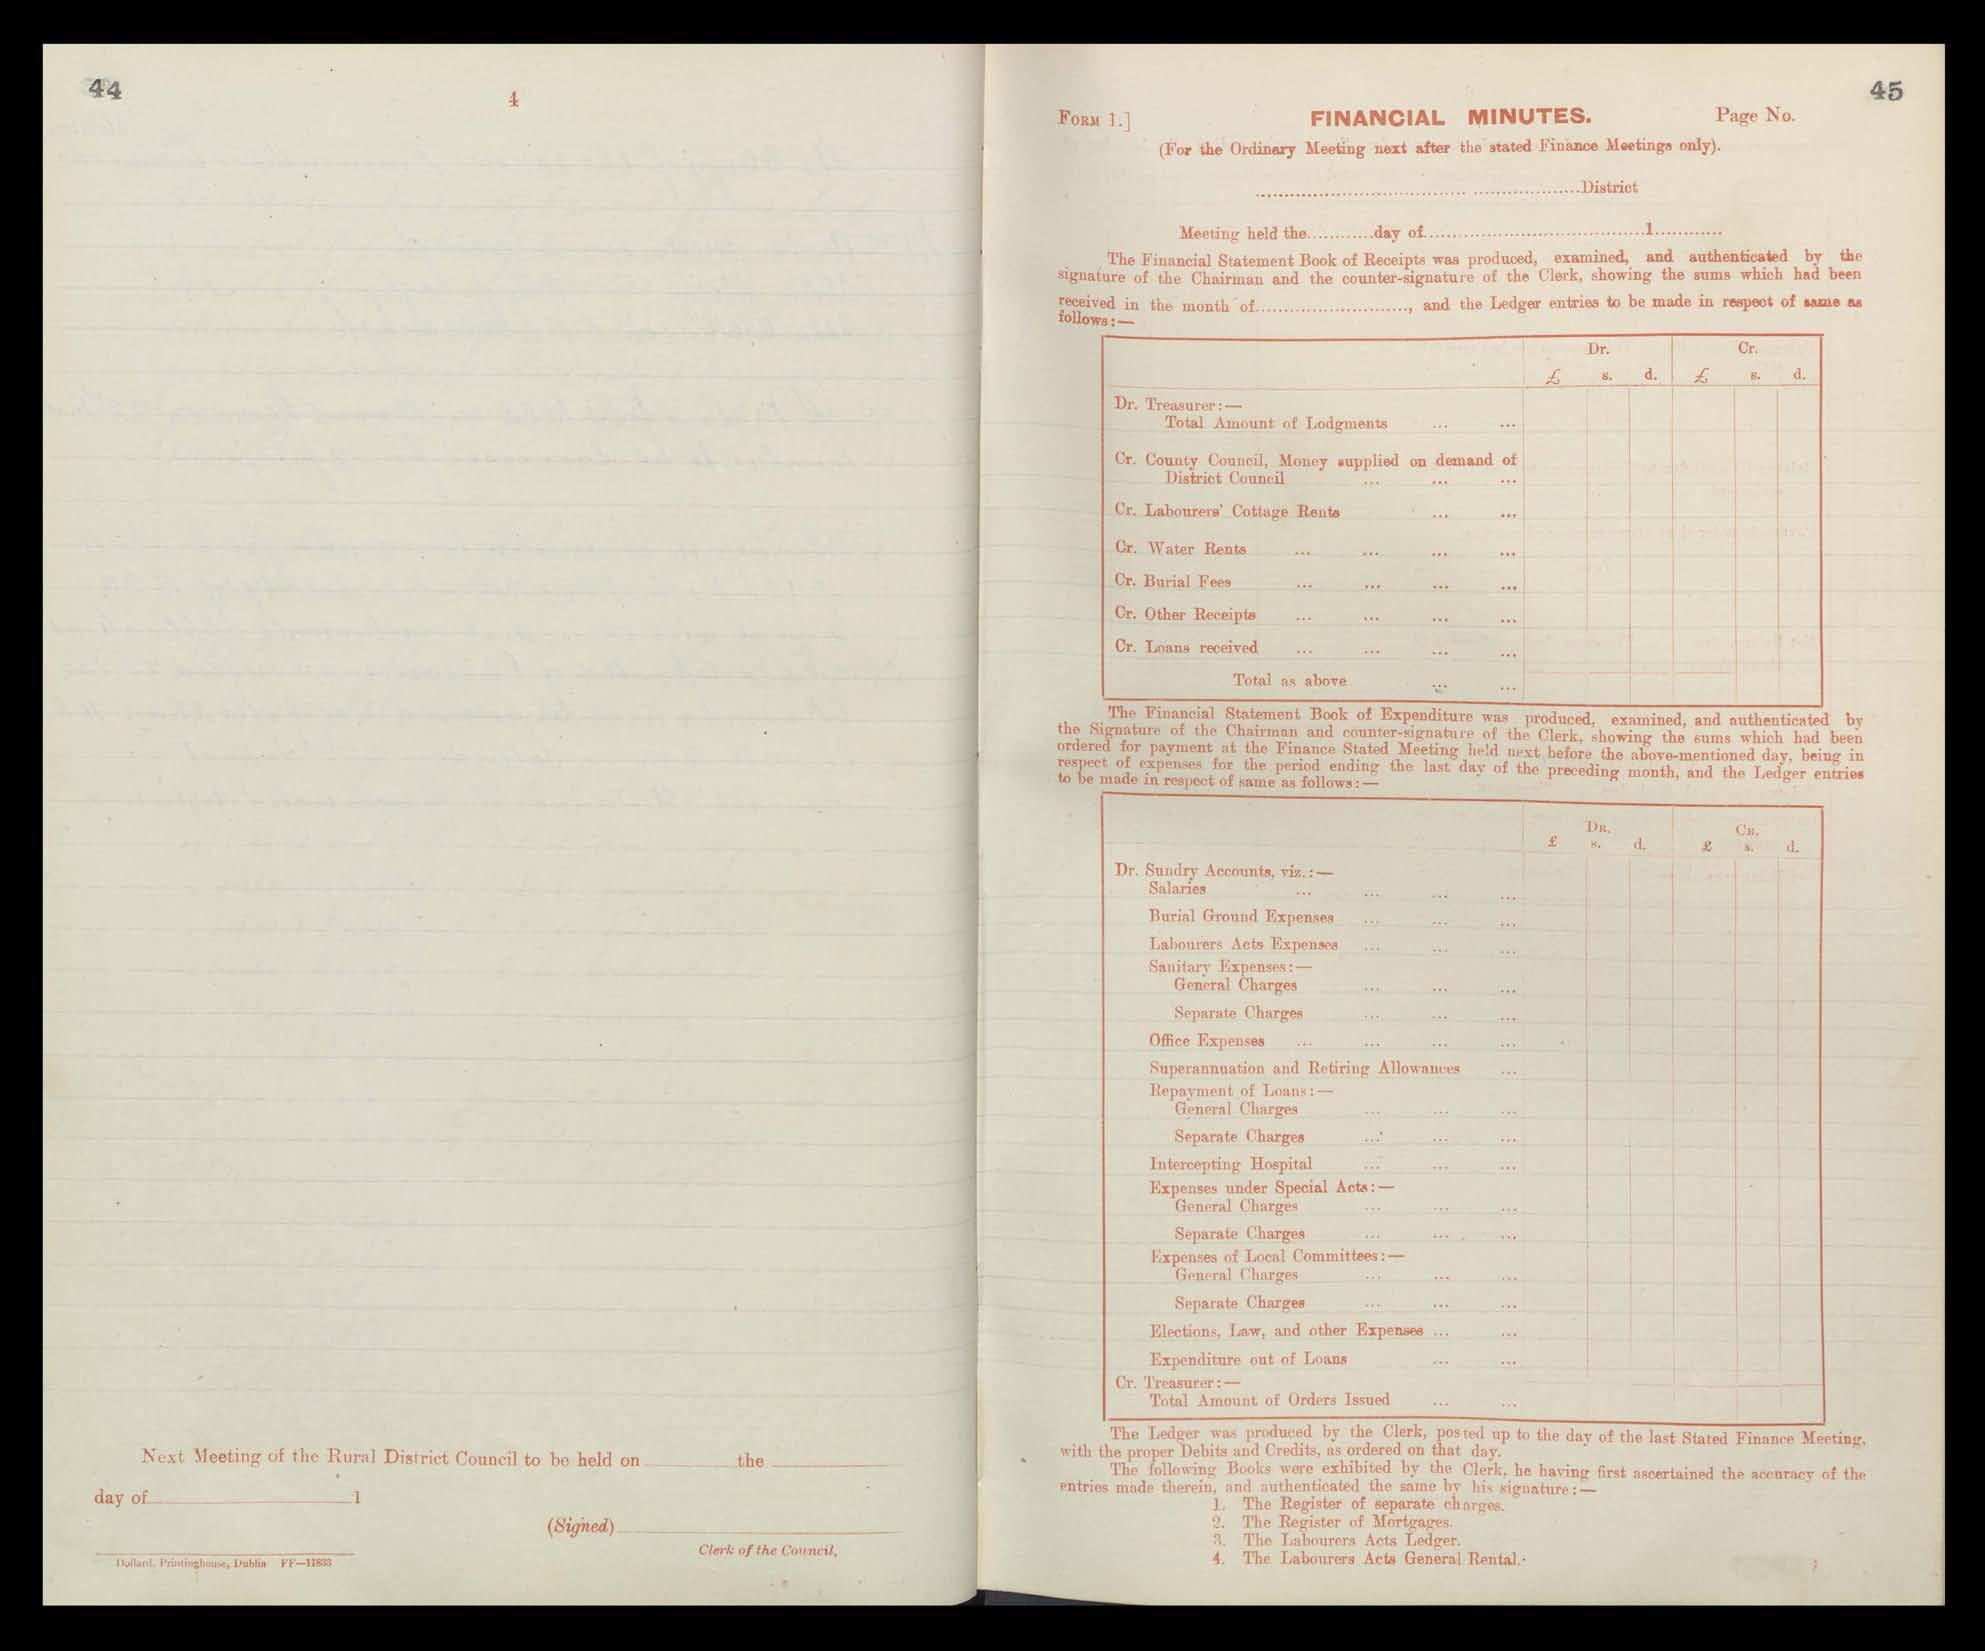 44
4
Next Meeting of the Rural District Council to be held on the
day of 1
(Signed)
Clerk of the Council,
Dollard, Printinghouse, Dublin FF—11833
45
FORM 1.] FINANCIAL MINUTES. Page No.
(For the Ordinary Meeting next after the stated Finance Meetings only).
District
Meeting held the............day of........................................1............
The Financial Statement Book of Receipts was produced, examined, and authenticated by the
signature of the Chairman and the counter-signature of the Clerk, showing the sums which had been
received in the month of..........................., and the Ledger entries to be made in respect of same as
follows:—
Dr. Cr.
£ s. d. £ s. d.
Dr. Treasurer:—
Total Amount of Lodgments ... ...
Cr. County Council, Money supplied on demand of
District Council ... ... ...
Cr. Labourers' Cottage Rents ... ...
Cr. Water Rents ... ... ... ...
Cr. Burial Fees ... ... ... ...
Cr. Other Receipts ... ... ... ...
Cr. Loans received ... ... ... ...
Total as above ... ...
The Financial Statement Book of Expenditure was produced, examined, and authenticated by
the Signature of the Chairman and counter-signature of the Clerk, showing the sums which had been
ordered for payment at the Finance Stated Meeting held next before the above-mentioned day, being in
respect of expenses for the period ending the last day of the preceding month, and the Ledger entries
to be made in respect of same as follows:—
DR. CR.
£ s. d. £ s. d.
Dr. Sundry Accounts, viz.:—
Salaries ... ... ... ...
Burial Ground Expenses ... ... ...
Labourers Acts Expenses ... ... ...
Sanitary Expenses:—
General Charges ... ... ...
Separate Charges ... ... ...
Office Expenses ... ... ... ...
Superannuation and Retiring Allowances ...
Repayment of Loans:—
General Charges ... ... ...
Separate Charges ... ... ...
Intercepting Hospital ... ... ...
Expenses under Special Acts:—
General Charges ... ... ...
Separate Charges ... ... ...
Expenses of Local Committees:—
General Charges ... ... ...
Separate Charges ... ... ...
Elections, Law, and other Expenses ... ...
Expenditure out of Loans ... ...
Cr. Treasurer:—
Total Amount of Orders Issued ... ...
The Ledger was produced by the Clerk, posted up to the day of the last Stated Finance Meeting,
with the proper Debits and Credits, as ordered on that day.
The following Books were exhibited by the Clerk, he having first ascertained the accuracy of the
entries made therein, and authenticated the same by his signature:—
1. The Register of separate charges.
2. The Register of Mortgages.
3. The Labourers Acts Ledger.
4. The Labourers Acts General Rental.